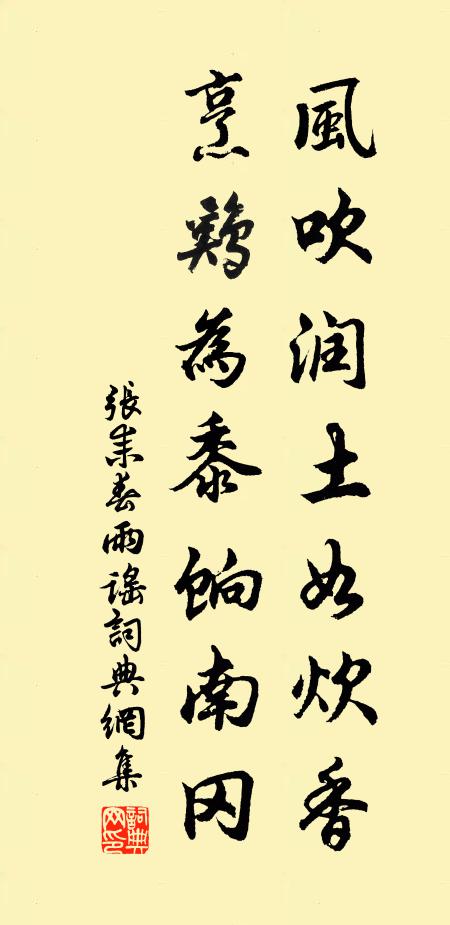 風吹润土如炊香
烹鷄為黍餉南冈
張耒春雨謠詞典網集
詞典网印